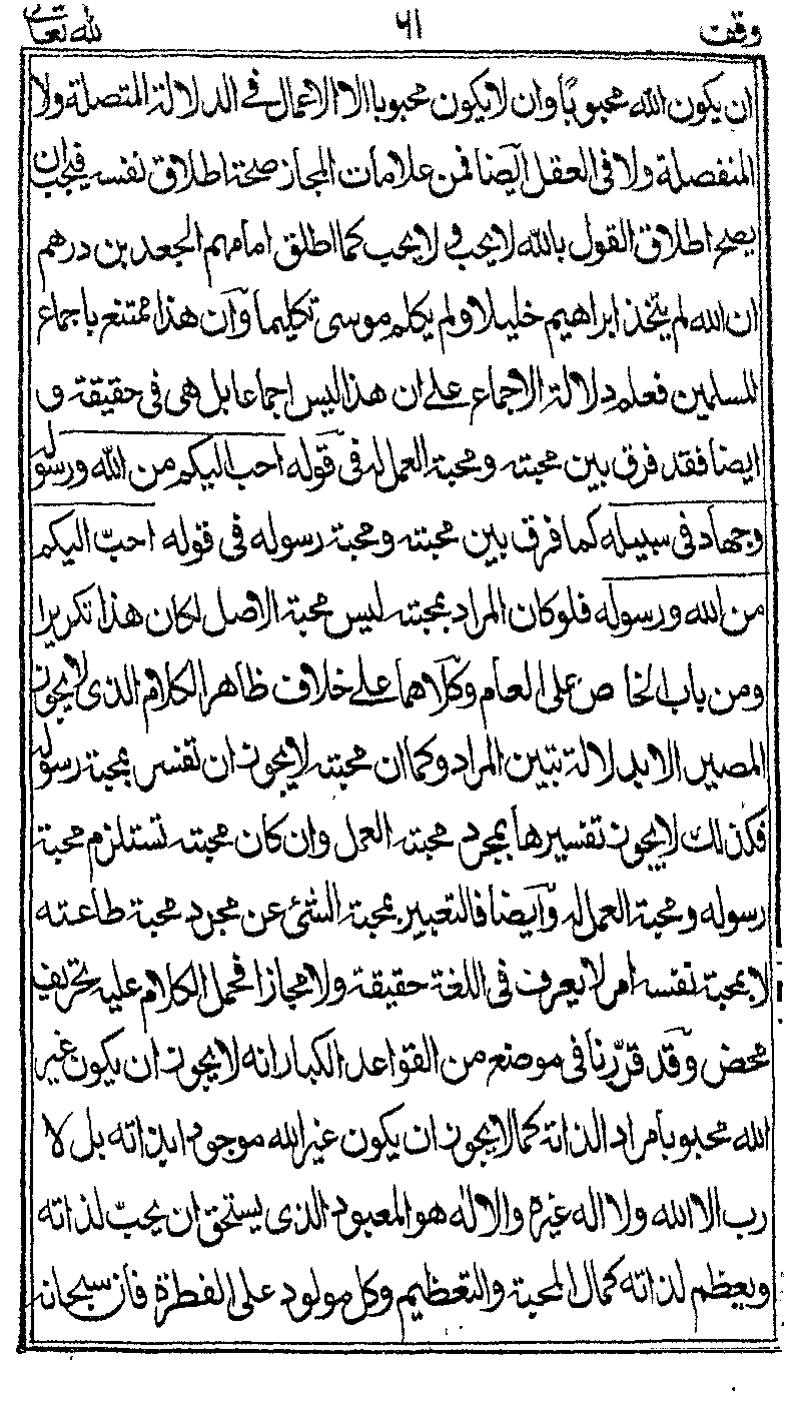 وقف ٦١ لله تعالى
ان يكون الله محبوبًا وان لا يكون محبوبا الا الاعمال في الدلالة المتصلة ولا
المنفصلة ولا في العقل ايضا فمن علامات المجاز صحة اطلاق نفسه فيجب ان
يصح اطلاق القول بالله لا يحب ولا يحب كما اطلق امامهم الجعد بن درهم
ان الله لم يتخذ ابراهيم خليلا ولم يكلم موسى تكليما وآن هذا ممتنع باجماع
المسلمين فعلم دلالة الاجماع على ان هذا ليس اجماعا بل هى فى حقيقة و
ايضا فقد فرق بين محبته ومحبة العمل له فى قوله احب اليكم من الله ورسوله
وجهاد فى سبيله كما فرق بين محبته ومحبة رسوله فى قوله احبّ اليكم
من الله ورسوله فلو كان المراد بمحبته ليس محبة الاصل لكان هذا تكريرا
ومن باب الخاص على العام وكلاهما على خلاف ظاهر الكلام الذى لا يجوز
المصير الا بدلالة تبين المراد وكما ان محبته لا يجوز ان تفسر بمحبة رسوله
فكذلك لا يجوز تفسيرها بمجرد محبة العمل وان كان محبته تستلزم محبة
رسوله ومحبة العمل له وآيضا فالتعبير بمحبة الشئ عن مجرد محبة طاعته
لا بمحبة نفسه امر لا يعرف فى اللغة حقيقة ولا مجازا فحمل الكلام عليه تحريف
محض وقد قرّرنا فى موضع من القواعد الكبار انه لا يجوز ان يكون غير
الله محبوبا مراد الذاته كما لا يجوز ان يكون غير الله موجودا بذاته بل لا
رب الا الله ولا اله غيره والاله هو المعبود الذى يستحق ان يحبّ لذاته
ويعظم لذاته كمال المحبة والتعظيم وكل مولود على الفطرة فان سبحانه